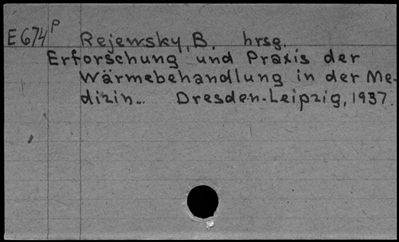 E674P Rejewsky, B. hrsg.
Erforschung und Praxis der
Wärmebehandlung in der Me-
dizin.. Dresden-Leipzig, 1937.